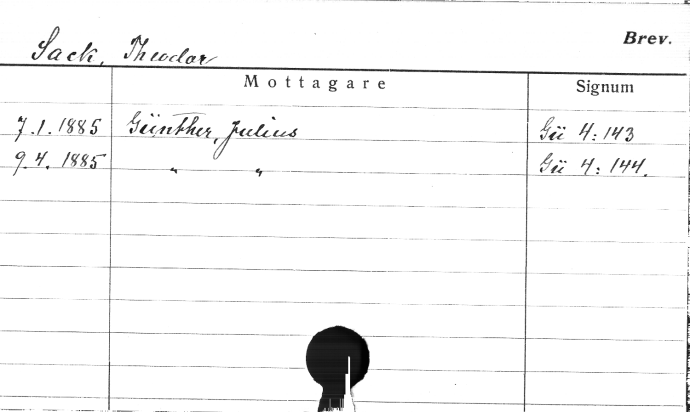 Brev.
Sack, Theodor
Mottagare Signum
7.1.1885 Günther, Julius Gü 4:143
9.4.1885 " " Gü 4:144.